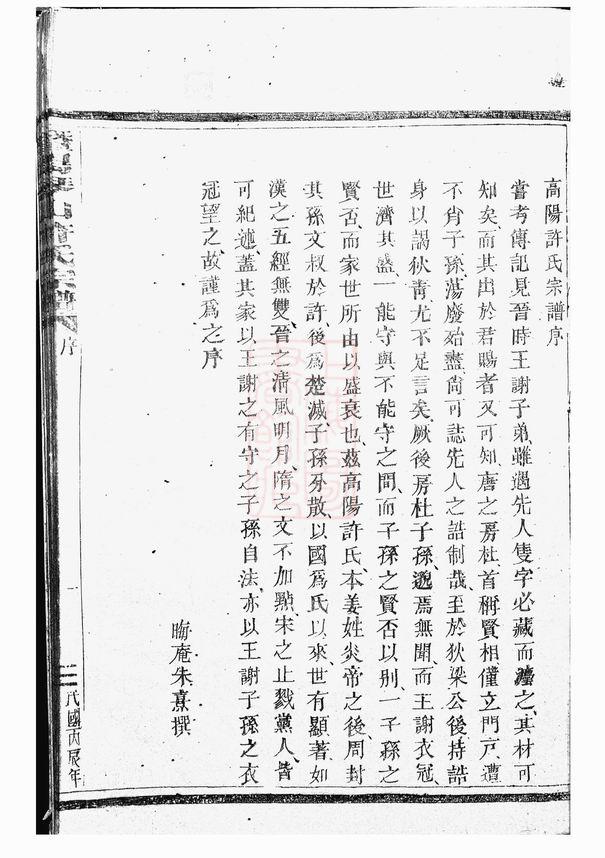 高陽許氏宗譜序
嘗考傳記見晉時王謝子弟雖遇先人隻字必藏而之其材可
知矣而其出於君賜者又可知唐之房杜首稱賢相僅立門戸遭
不肖子孫蕩廢殆盡尙可誌先人之誥制哉至於狄梁公後持誥
身以謁狄靑尤不足言矣厥後房杜子孫焉無聞而王謝衣冠
世濟其盛一能守與不能守之間而子孫之賢否以別一子孫之
賢否而家世所由以盛衰也茲高陽許氏本姜姓炎帝之後周封
其孫文叔於許後爲楚滅子孫分散以國爲氏以來世有顯著如
漢之五經無雙晉之淸風明月隋之文不加點宋之止戮黨人皆
可紀述蓋其家以王謝之有守之子孫自法亦以王謝子孫之衣
冠望之故謹爲之序
晦庵朱熹撰
氏宗譜 序
一
民國丙辰年